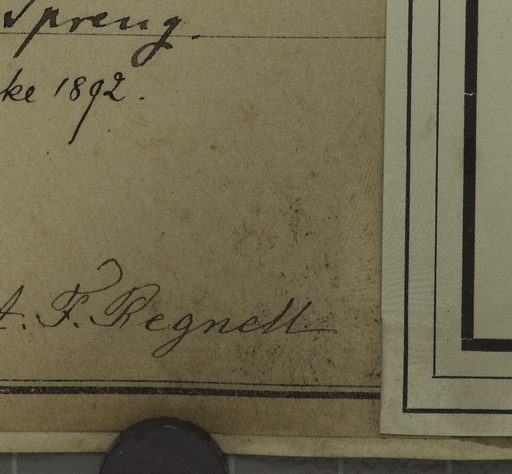 Spreng.
ke 1892.
A. F. Regnell